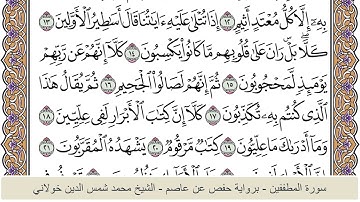 بِهِۦٓ إِلَّا كُلُّ مُعۡتَدٍ أَثِيمٍ ١٢ إِذَا تُتۡلَىٰ عَلَيۡهِ ءَايَٰتُنَا قَالَ أَسَٰطِيرُ ٱلۡأَوَّلِينَ ١٣
كَلَّاۖ بَلۡۜ رَانَ عَلَىٰ قُلُوبِهِم مَّا كَانُواْ يَكۡسِبُونَ ١٤ كَلَّآ إِنَّهُمۡ عَن رَّبِّهِمۡ
يَوۡمَئِذٖ لَّمَحۡجُوبُونَ ١٥ ثُمَّ إِنَّهُمۡ لَصَالُواْ ٱلۡجَحِيمِ ١٦ ثُمَّ يُقَالُ هَٰذَا
ٱلَّذِي كُنتُم بِهِۦ تُكَذِّبُونَ ١٧ كَلَّآ إِنَّ كِتَٰبَ ٱلۡأَبۡرَارِ لَفِي عِلِّيِّينَ ١٨
وَمَآ أَدۡرَىٰكَ مَا عِلِّيُّونَ ١٩ كِتَٰبٞ مَّرۡقُومٞ ٢٠ يَشۡهَدُهُ ٱلۡمُقَرَّبُونَ ٢١
سورة المطففين - برواية حفص عن عاصم - الشيخ محمد شمس الدين خولاني